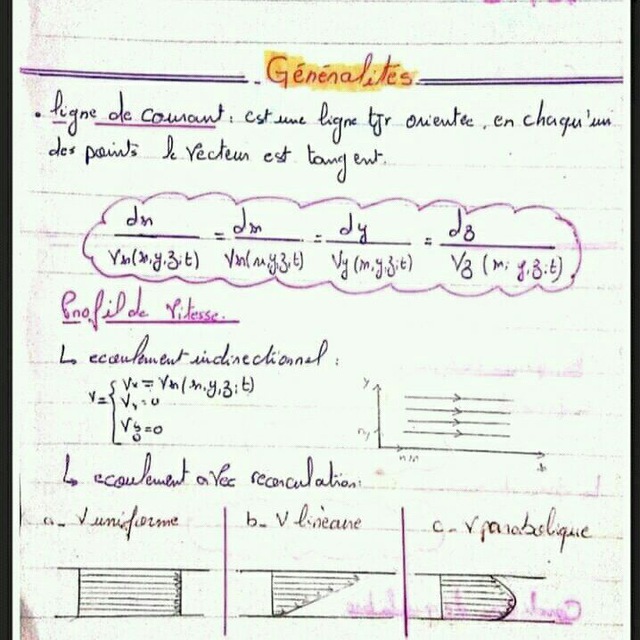 Généralités
. ligne de courant : est une ligne tjr orientée, en chaqu'un
des points le vecteur est tangent.
dx/Vx(x,y,z;t) = dx/Vx(x,y,z;t) = dy/Vy(x,y,z;t) = dz/Vz(x; y,z;t)
Profil de vitesse.
↳ ecoulement indirectionnel :
V = { Vx = Vx(x,y,z;t)
Vy=0
Vz=0
y
x
↳ ecoulement avec
a_ V uniforme
b_ V linéaire
c_ V parabolique